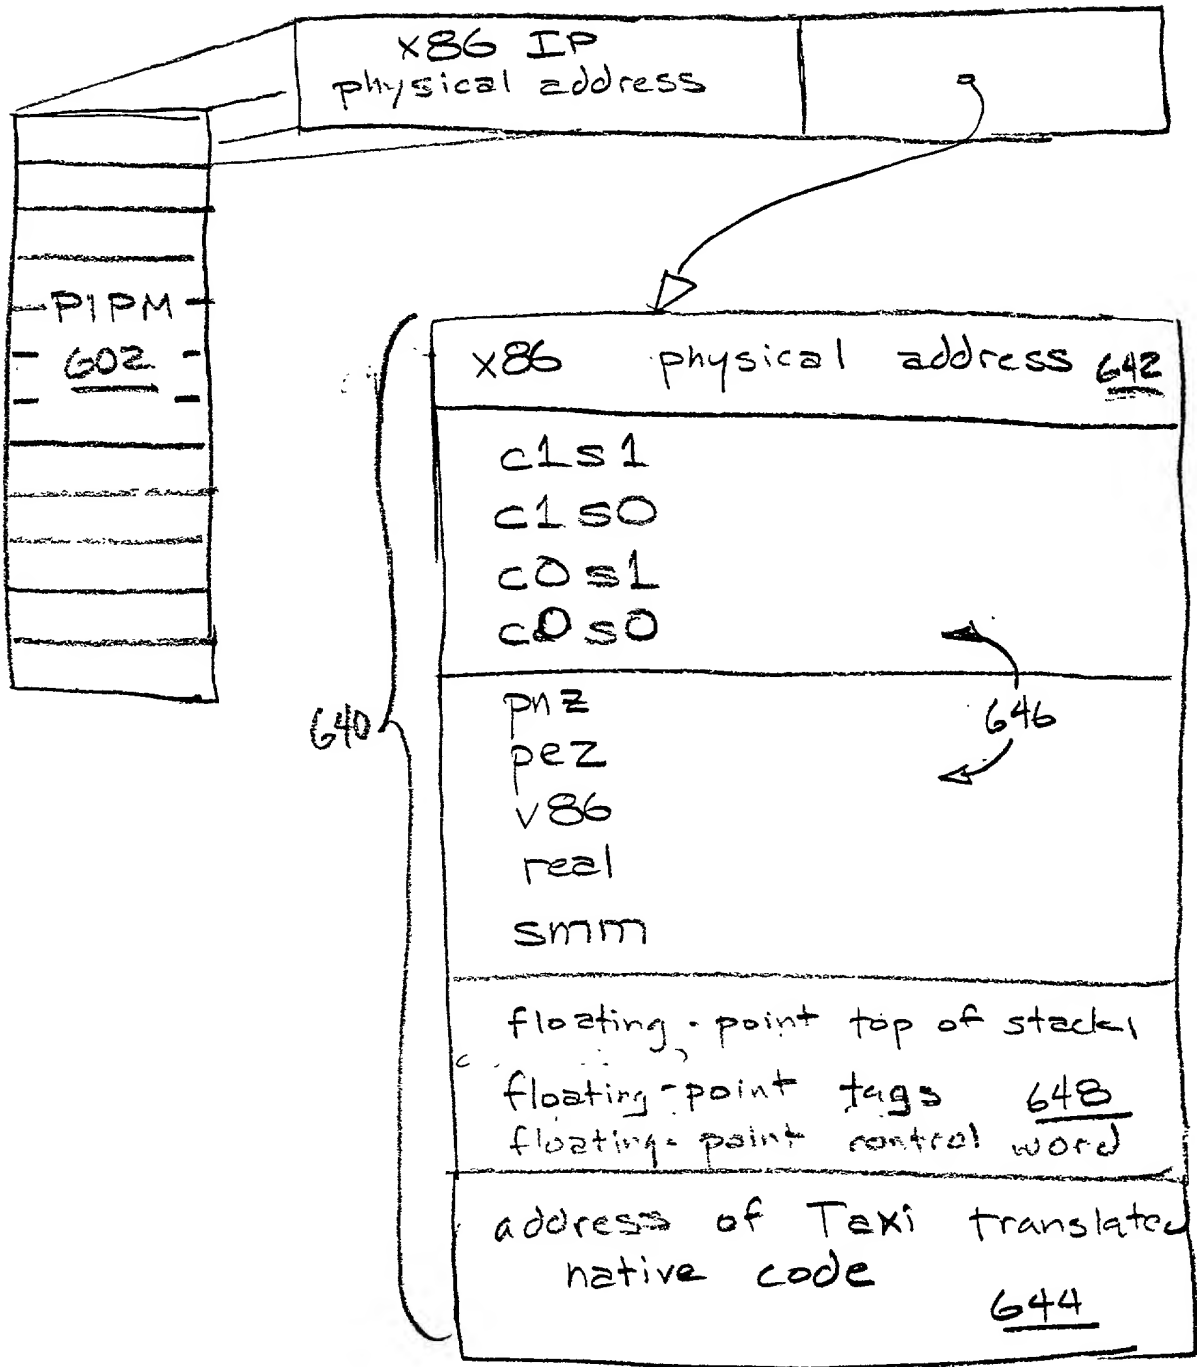 x86 IP
physical address
PIPM
602
x86 physical address 642
c1s1
c1s0
c0s1
c0s0
646
pnz
pez
v86
real
smm
640
floating-point top of stack,
floating-point tags 648
floating-point control word
address of Taxi translated
native code
644